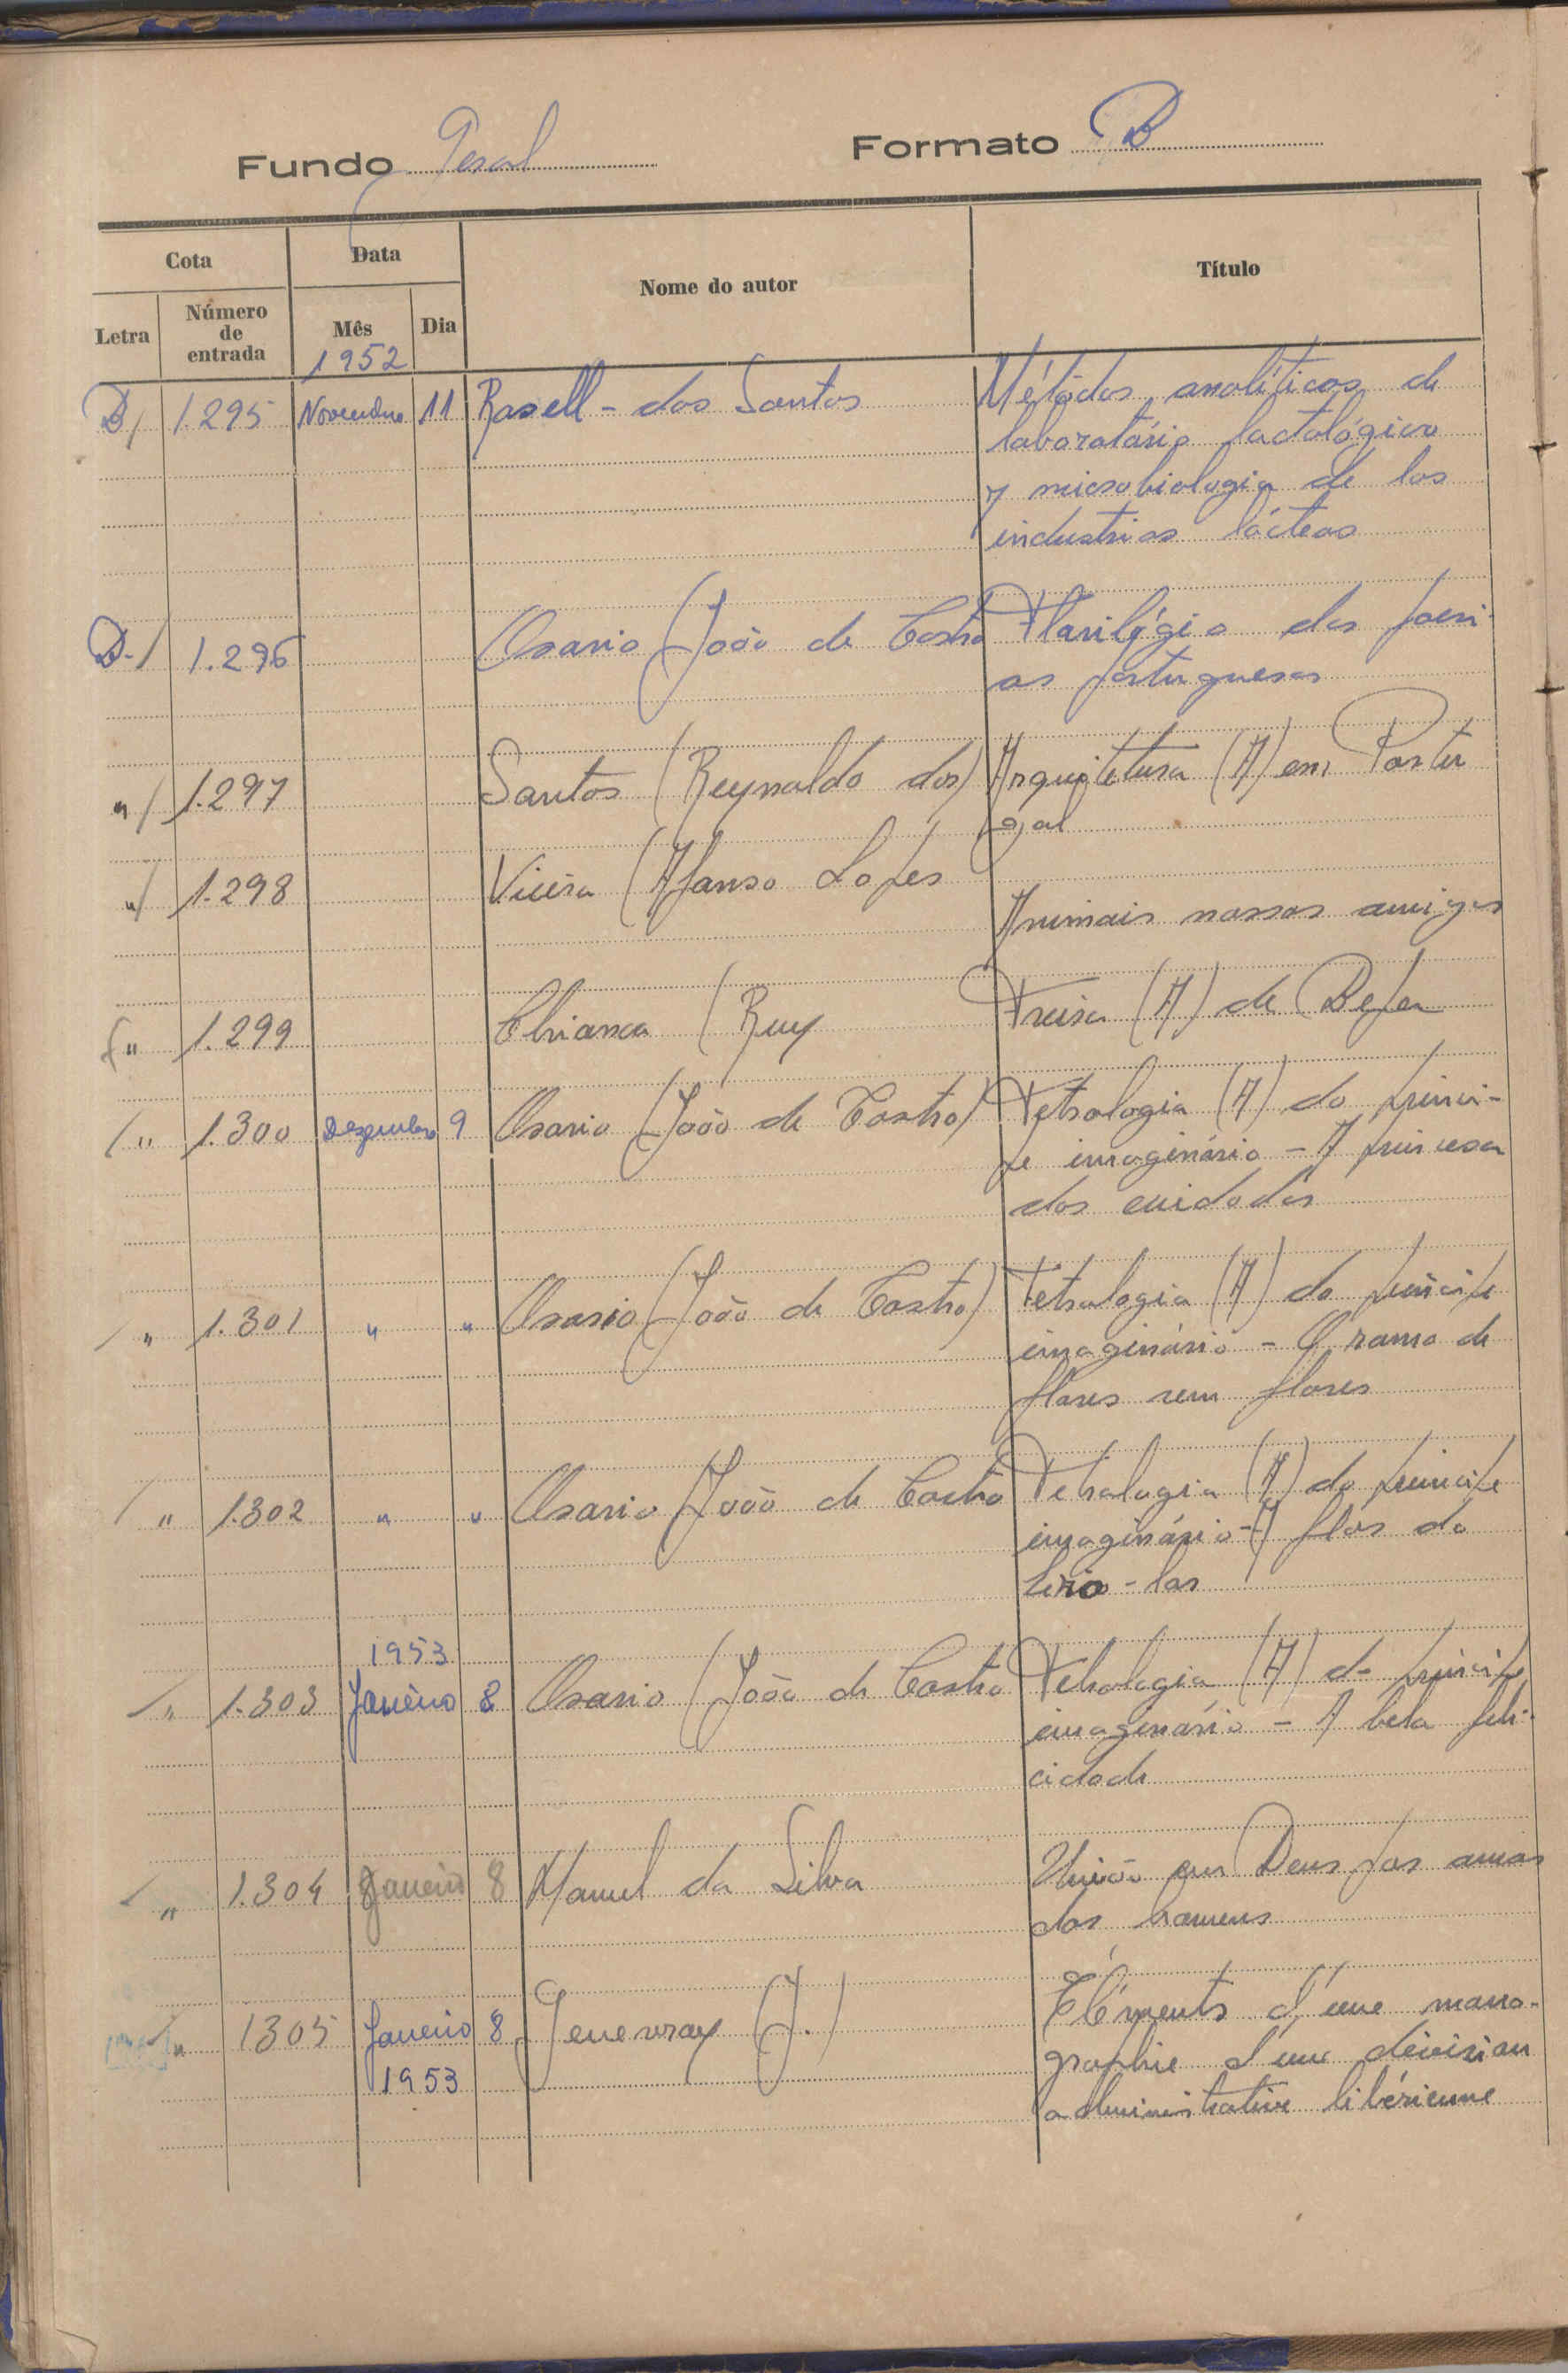 Fundo Geral Formato B
Cota Data Nome do autor Título
Letra Número de entrada Mês Dia
1952
B/ 1.295 Novembro 11 Rosell - dos Santos Métodos analíticos de
laboratório lactológico
y microbiologia de las
industrias lácteas
B-/ 1.296 Osorio (João de Castro Florilégio das poesi-
as portuguesas
"/ 1.297 Santos (Reynaldo dos) Arquitetura (A) em Portu
gal
"/ 1.298 Vieira (Afonso Lopes
Animais nossos amigos
" 1.299 Chianca (Ruy Freira (A) de Beja
/" 1.300 Dezembro 9 Osorio (João de Castro) Tetralogia (A) do princi-
pe imaginário - A princesa
dos cuidados
/" 1.301 " " Osorio (João de Castro) Tetralogia (A) do príncipe
imaginário - O ramo de
flores sem flores
/" 1.302 " " Osorio (João de Castro Tetralogia (A) do principe
imaginário - A flor do
lirio - lar
1953
/" 1.303 Janeiro 8 Osorio (João de Castro Tetralogia (A) do principe
imaginário - A bela feli-
cidade
/" 1.304 Janeiro 8 Manuel da Silva União em Deus por amor
dos homens
/" 1305 Janeiro 8 Genevray (J.) Éléments d'une mono-
1953 graphie d'une division
administrative libérienne